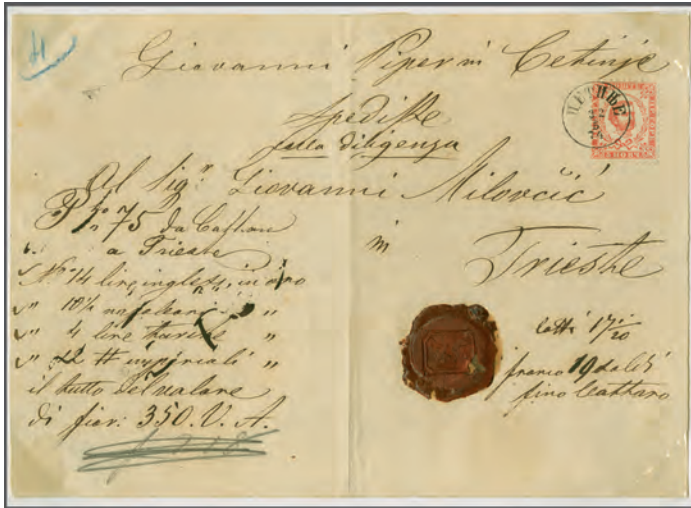 Giovanni Piper in Cetinje
spedisse
colla diligenza
Al Sigr. Giovanni Milovčić
in
Trieste
No. 75 da Cattaro
a Trieste
No. 14 lire inglesi, in oro
" 10½ napoleoni " "
" 4 lire turche "
" imperiali "
il tutto del valore
di fior: 350. V. A.
lotti 17 1/20
franco 19 soldi
fino Cattaro
ЦЕТИЊЕ